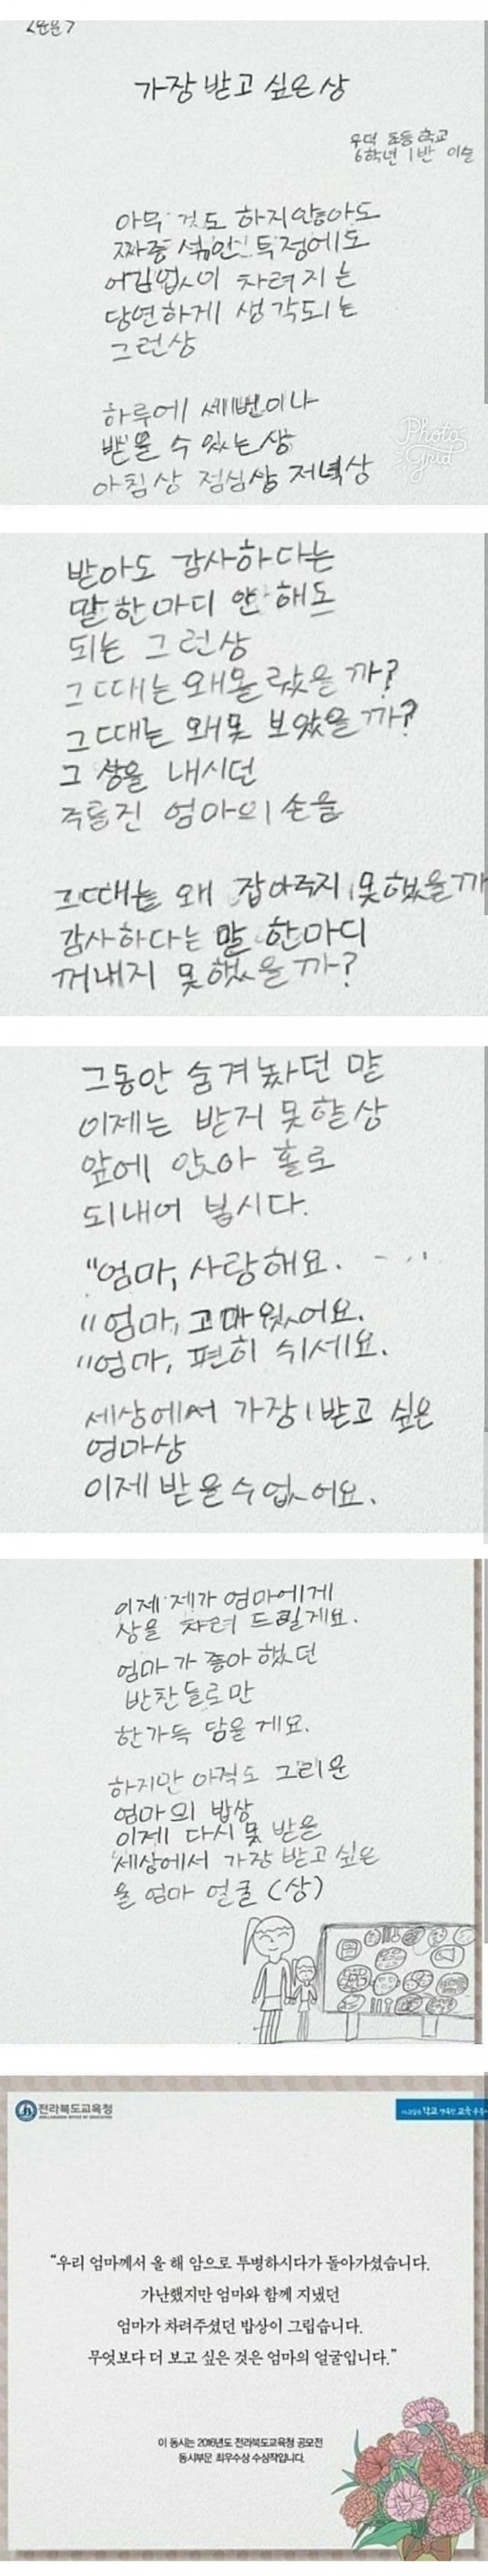 <운문>
가장 받고 싶은 상
우덕 초등학교
6학년 1반 이슬
아무 것도 하지않아도
짜증 섞인 투정에도
어김없이 차려지는
당연하게 생각되는
그런상
하루에 세번이나
받을 수 있는 상
아침상 점심상 저녁상
Photo
Grid
받아도 감사하다는
말 한마디 안 해도
되는 그런상
그때는 왜몰랐을 까?
그때는 왜못 보았을 까?
그 상을 내시던
주름진 엄마의 손을
그때는 왜 잡아주지 못했을까
감사하다는 말 한마디
꺼내지 못했을까?
그동안 숨겨놨던 말
이제는 받지 못할상
앞에 앉아 홀로
되내어 봅시다.
"엄마, 사랑해요.
"엄마, 고마웠어요.
"엄마, 편히 쉬세요.
세상에서 가장 받고 싶은
엄마상
이제 받을수없어요.
이제 제가 엄마에게
상을 차려 드릴게요.
엄마가 좋아했던
반찬들로만
한가득 담을게요.
하지만 아직도 그리운
엄마의 밥상
이제 다시 못 받을
세상에서 가장 받고 싶은
울 엄마 얼굴 (상)
전라북도교육청
"우리 엄마께서 올 해 암으로 투병하시다가 돌아가셨습니다.
가난했지만 엄마와 함께 지냈던
엄마가 차려주셨던 밥상이 그립습니다.
무엇보다 더 보고 싶은 것은 엄마의 얼굴입니다."
이 동시는 2016년도 전라북도교육청 공모전
동시부문 최우수상 수상작입니다.